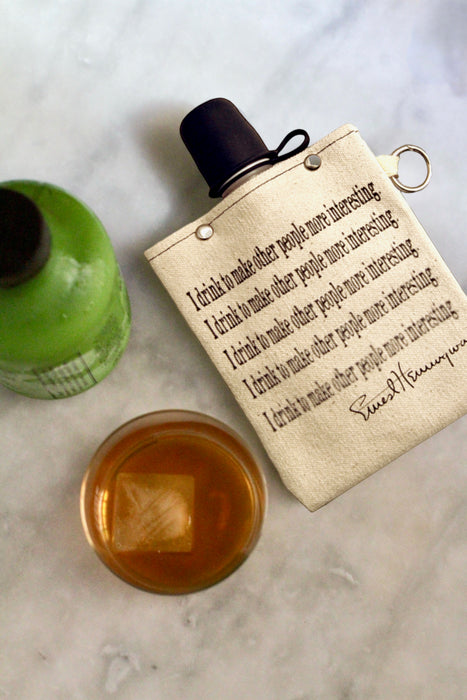 I drink to make other people more interesting
I drink to make other people more interesting
I drink to make other people more interesting
I drink to make other people more interesting
I drink to make other people more interesting
Ernest Hemingway